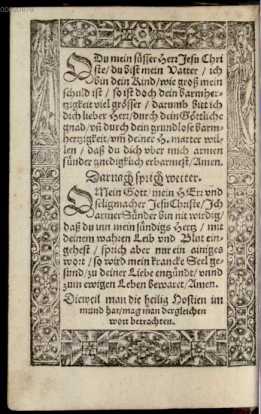 O Du mein süsser Herr Jesu Chri
ste/ du bist mein Vatter / ich
bin dein Kind/ wie groß mein
schuld ist / so ist doch dein barmher-
tzigkeit viel grösser / darumb bitt ich
dich lieber Herr/ durch dein Göttliche
gnad/ vñ durch dein grundlose barm-
hertzigkeit/ vm̃ deiner H. marter wil-
len / daß du dich vber mich armen
sünder gnediglich erbarmest/ Amen.
Darnach sprich weiter.
O Mein Gott/ mein HErr vnd
seligmacher Jesu Christe/ Jch
armer Sünder bin nit wirdig/
daß du inn mein sündigs Hertz / mit
deinem wahren Leib vnd Blut ein-
gehest / sprich aber nur ein ainiges
wort / so wird mein krancke Seel ge-
sund/ zu deiner Liebe entzündt/ vnnd
zum ewigen Leben bewaret/ Amen.
Dieweil man die heilig Hostien im
mund hat/ mag man dergleichen
wort betrachten.